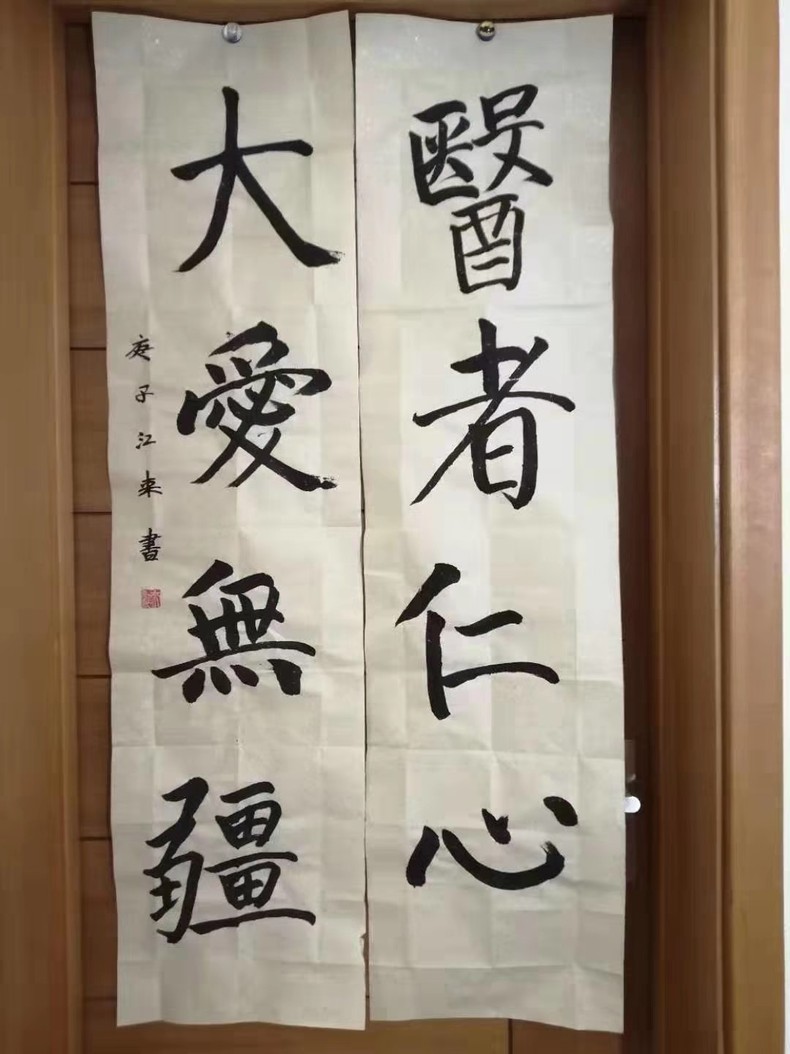 醫者仁心
大愛無疆
庚子江来書